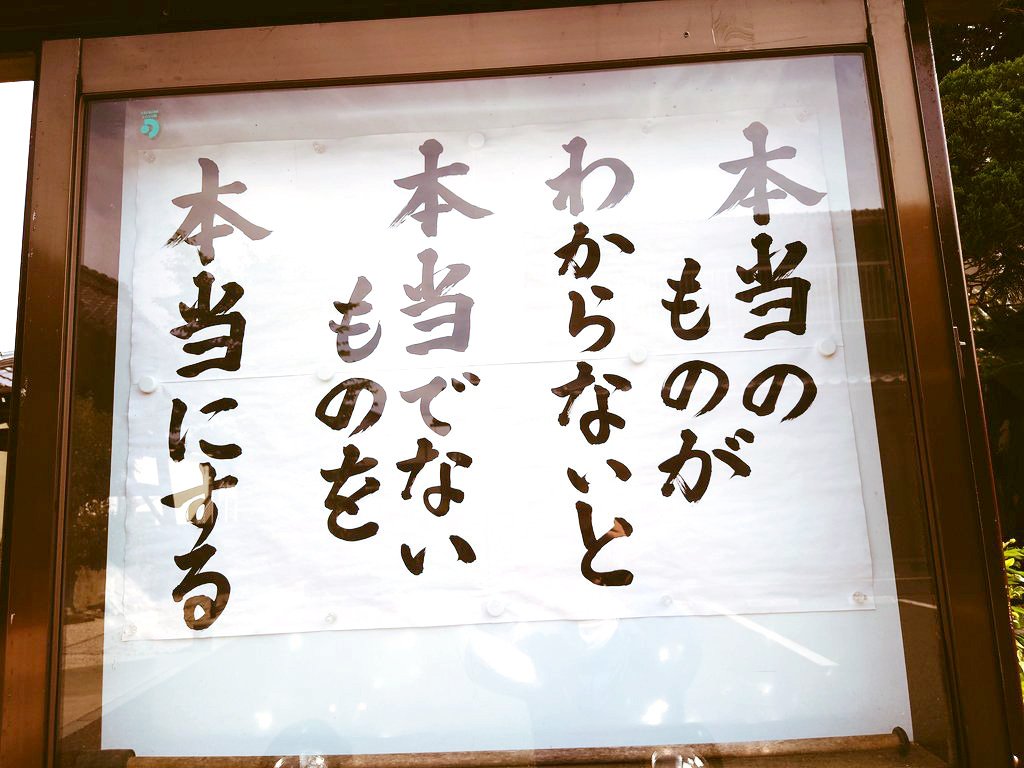 本当の
ものが
わからないと
本当でない
ものを
本当にする